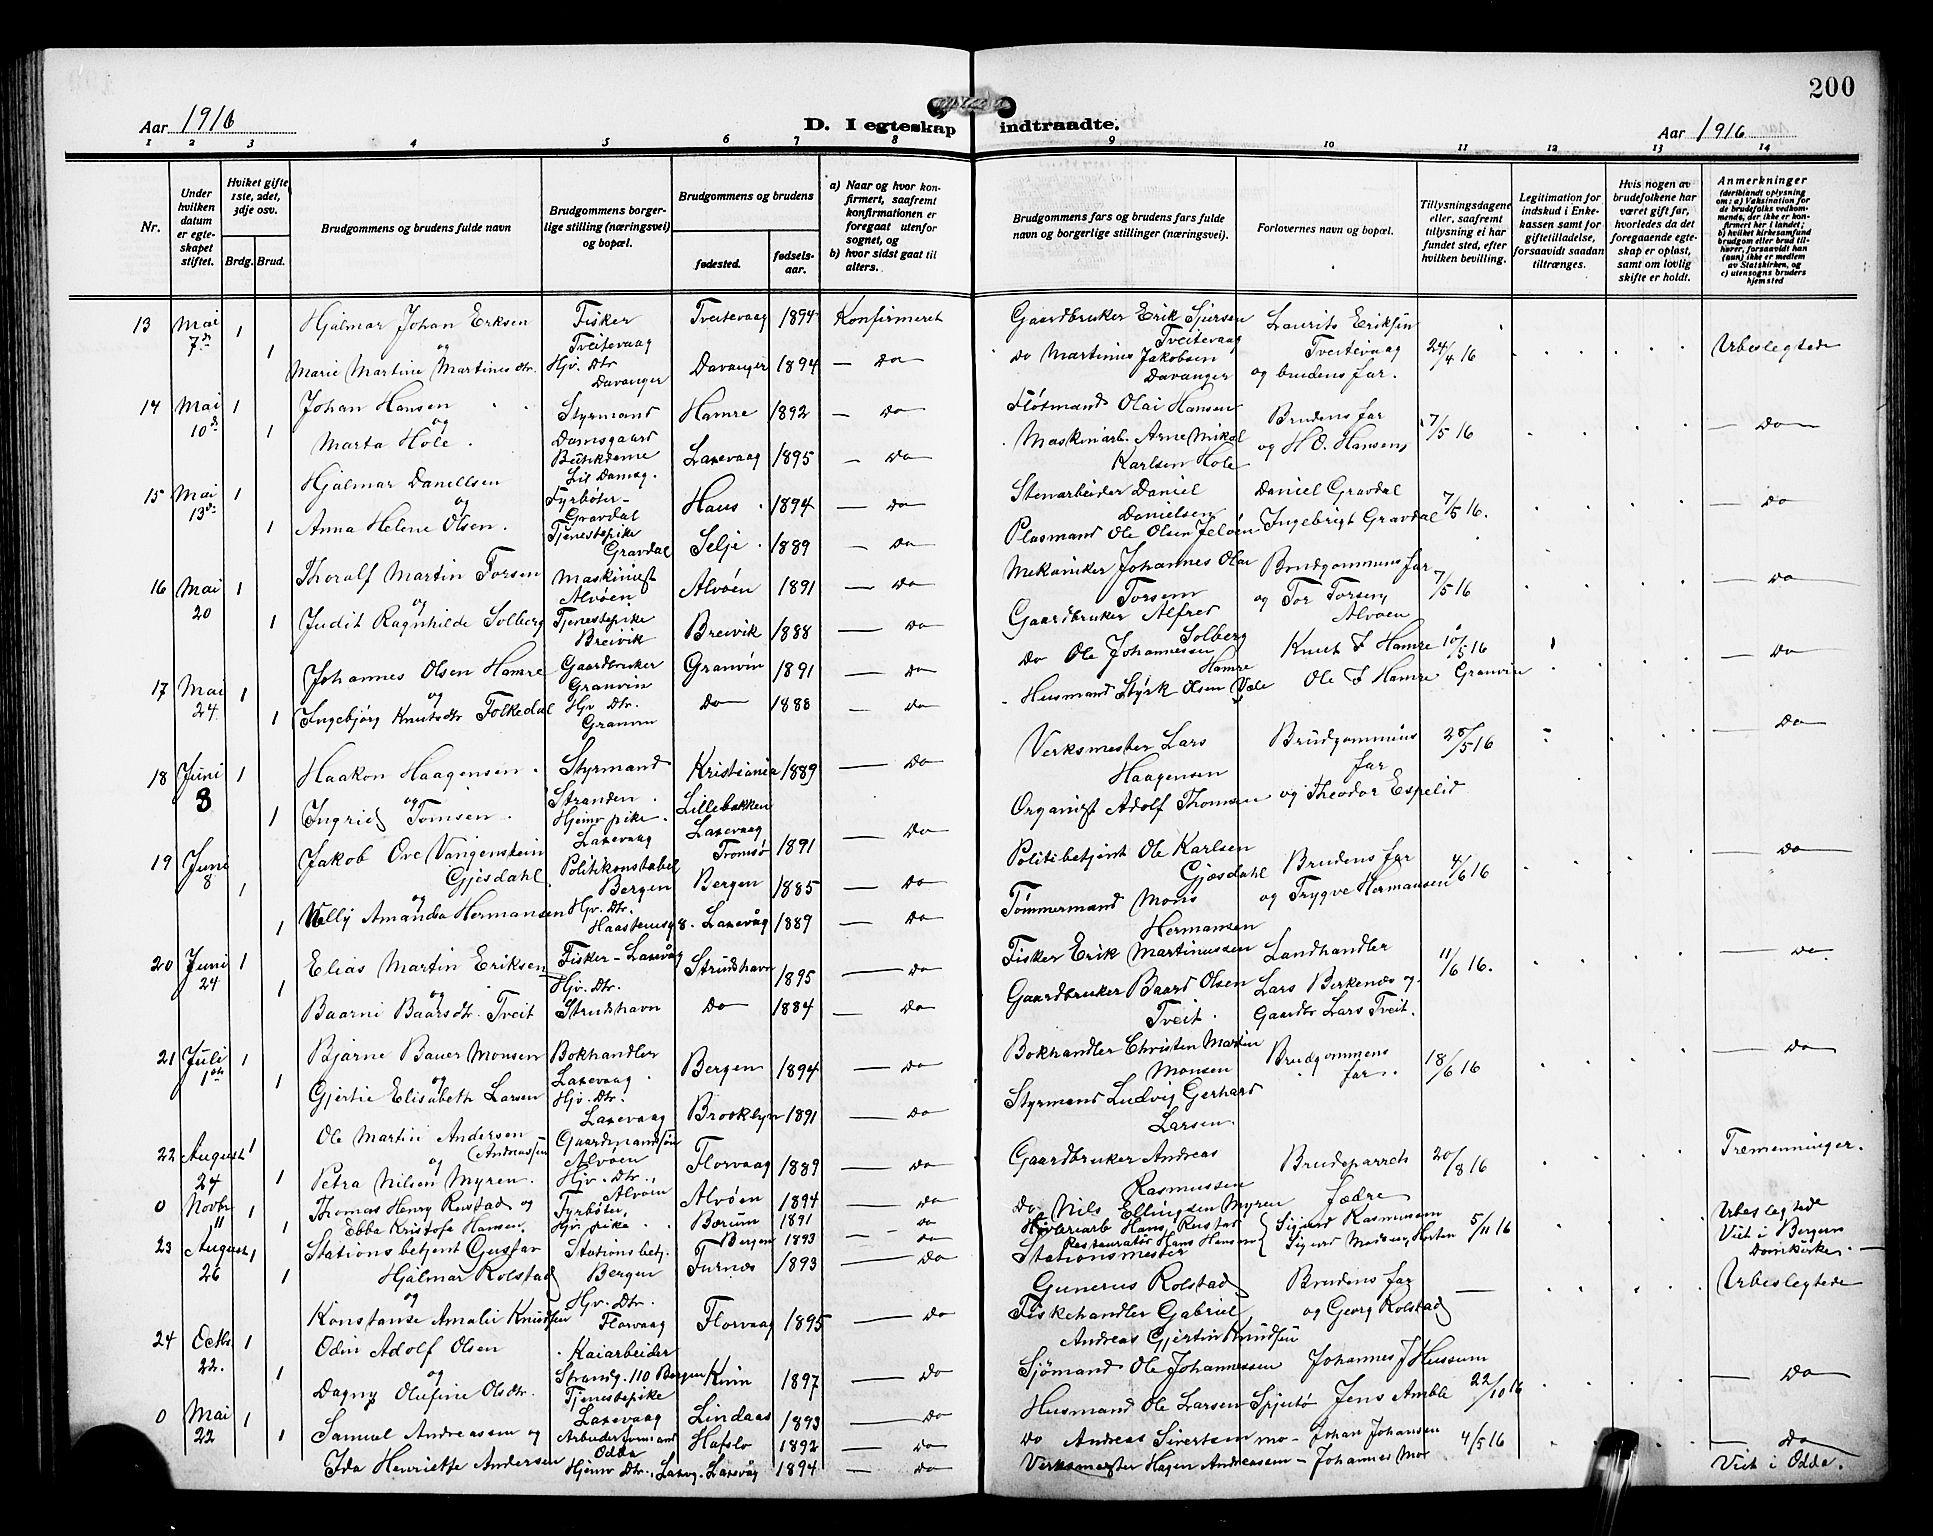 200
Aar 1916
D. I egteskap indtraadte.
Aar 1916
1 2 3 4 5 6 7 8 9 10 11 12 13 14
Nr.
Under hvilken datum er egteskapet stiftet.
Hviket gifte, 1ste, 2det, 3dje osv.
Brdg. Brud.
Brudgommens og brudens fulde navn
Brudgommens borgerlige stilling (næringsvei) og bopæl.
Brudgommens og brudens
fødested.
fødselsaar.
a) Naar og hvor konfirmert, saafremt konfirmationen er foregaat utenfor sognet, og
b) hvor sidst gaat til alters.
Brudgommens fars og brudens fars fulde navn og borgerlige stillinger (næringsvei).
Forlovernes navn og bopæl.
Tillysningsdagene eller, saafremt tillysning ei har fundet sted, efter hvilken bevilling.
Legitimation for indskud i Enkekassen samt for giftetilladelse, forsaavidt saadan tiltrænges.
Hvis nogen av brudefolkene har været gift før, hvorledes da det foregaaende egteskap er opløst, samt om lovlig skifte er holdt.
Anmerkninger
(deriblandt oplysning om: a) Vaksination for de brudefolks vedkommende, der ikke er konfirmert her i landet; b) hvilket kirkesamfund brudgom eller brud tilhører, forsaavidt han (hun) ikke er medlem av Statskirken, og c) utensogns bruders hjemsted
13 Mai 7de 1 Hjalmar Johan Eriksen Fisker Tveitevaag Tveitevaag 1894 Konfirmeret Gaardbruker Erik Sjursen Tveitevaag Laurits Eriksen Tveitevaag 24/4 16 Ubeslegtede
og
1 Marie Martine Martinesdtr. Hjv. Dtr Davanger Davanger 1894 — Do Do Martinus Jakobsen Davanger og brudens far.
14 Mai 10de 1 Johan Hansen Styrmand Damsgaard Hamre 1892 — Do Fløtmand Olai Hansen Brudens far 7/5 16 — Do
og
1 Marta Hole Laxevaag 1895 — Do Maskinarb. Arne Mikal Karlsen Hole og H.O. Hansen
15 Mai 13de 1 Hjalmar Danellsen Fyrbøter Gravdal Haus 1894 — Do Stenarbeider Daniel Danielsen Daniel Gravdal 7/5 16. — Do
og
1 Anna Helene Olsen. Tjenestepike Gravdal Selje 1889 — Do Plasmand Ole Olsen Ingebrigt Gravdal
16 Mai 20 1 Thoralf Martin Torsen Maskinist Alvøen Alvøen 1891 — Do Mekaniker Johannes Olai Torsen Brudgommens far 7/5 16 — Do
og
1 Judit Ragnhilde Solberg Tjenestepike Breivik Breivik 1888 — Do Gaardbruker Alfred Solberg og Tor Torsen Alvøen
17 Mai 24 1 Johannes Olsen Hamre Gaardbruker Granvin Granvin 1891 — Do Do Ole Johannessen Hamre Knut F Hamre 10/5 16 Granvin — Do
og
1 Ingebjørg Knutsdtr Folkedal Hjv Dtr. Granvin Do 1888 — Do Husmand Styrk Olsen Ole F Hamre
18 Juni 8 1 Haakon Haagensen Styrmand Stranden Kristiania 1889 — Do Verksmester Lars Haagensen Brudgommens far 28/5 16 — Do
og
1 Ingrid Tomsen. Hjemv pike Laxevaag Lillebakken Laxevaag 1891 — Do Organist Adolf Thomsen og Theodor Espelid
19 Juni 8 1 Jakob Ove Vangenstein Gjesdahl Politikonstabel Bergen Tromsø Bergen 1885 — Do Politibetjent Ole Karlsen Gjesdahl Brudens far 4/6 16 — Do
og
1 Nelly Amanda Hermansen Hjv. Dtr. 8. Laxevåg 1889 — Do Tømmermand Mons Hermansen og Trygve Hermansen
20 Juni 24 1 Elias Martin Eriksen Fisker - Laxevåg Strudshavn 1895 — Do Fisker Erik Martinussen Landhandler Lars Birkenes og 11/6 16. — Do
og
1 Baarni Baarsdtr. Tveit Hjv. Dtr. Strudshavn Do 1884 — Do Gaardbruker Baard Olsen Tveit. Gaardbr Lars Tveit.
21 Juli 1ste 1 Bjarne Bauer Monsen Bokhandler Laxevaag Bergen 1894 — Do Bokhandler Christen Martin Monsen Brudgommens far 18/6 16 — Do
og
1 Gjertie Elisabeth Larsen Hjv. Dtr. Laxevaag Brooklyn 1891 — Do Styrmand Ludvig Gerhard Larsen.
22 August 24 1 Ole Martin Andersen (Andreassen Gaardmandsøn Alvøen Florvaag 1889 — Do Gaardbruker Andreas Rasmussen Brudeparrets fædre 20/8 16 Tremenninger.
og
1 Petra Nilsen Myren. Hjv. Dtr. Alvøen Alvøen 1894 — Do Do Nils Ellingsen Myren
0 Novbr 11 1 Thomas Henry Rustad og Fyrbøter, Bærum 1891 — Do Hans Rustad Sigurd Rasmussen 5/11 16 Ubeslegtede
1 Ebba Kristofa Hansen. Hjv. pike Bergen 1893 — Do Restauratør Hans Hansen Sigurd Madsen, Horten Viet i Bergens Domkirke. —
23 August 26 1 Stationsbetjent Gustav Hjalmar Rolstad Stationsbetj. Bergen Furnes 1893 — Do Stationsmester Gunerus Rolstad Brudens far — Ubeslegtede
og
1 Konstanse Amalie Knudsen Hjv. Dtr. Florvaag Florvaag 1895 — Do Fiskehandler Gabriel Andreas Gjertin Knudsen og Georg Rolstad
24 Octbr 22. 1 Odin Adolf Olsen Kaiarbeider Strandg. 110 Bergen Kinn 1897 — Do Sjømand Ole Johannessen Johannes J Hussum 22/10 16 — Do
og
1 Dagny Olufine Olsdtr. Tjenestepike Laxevaag Lindaas 1893 — Do Husmand Ole Larsen Jens Amble
0 Mai 22 1 Samuel Andreassen og Arbeidsformand Odda Hafslo 1892 — Do Do Andreas Sivertsen Mo - Johan Johansen 4/5 16 — Do
1 Ida Henriette Andersen Hjemv Dtr., Laxvg. Laxevåg 1894 — Do Verksmester Hagen Andreassen - Johannes Mo Viet i Odda.